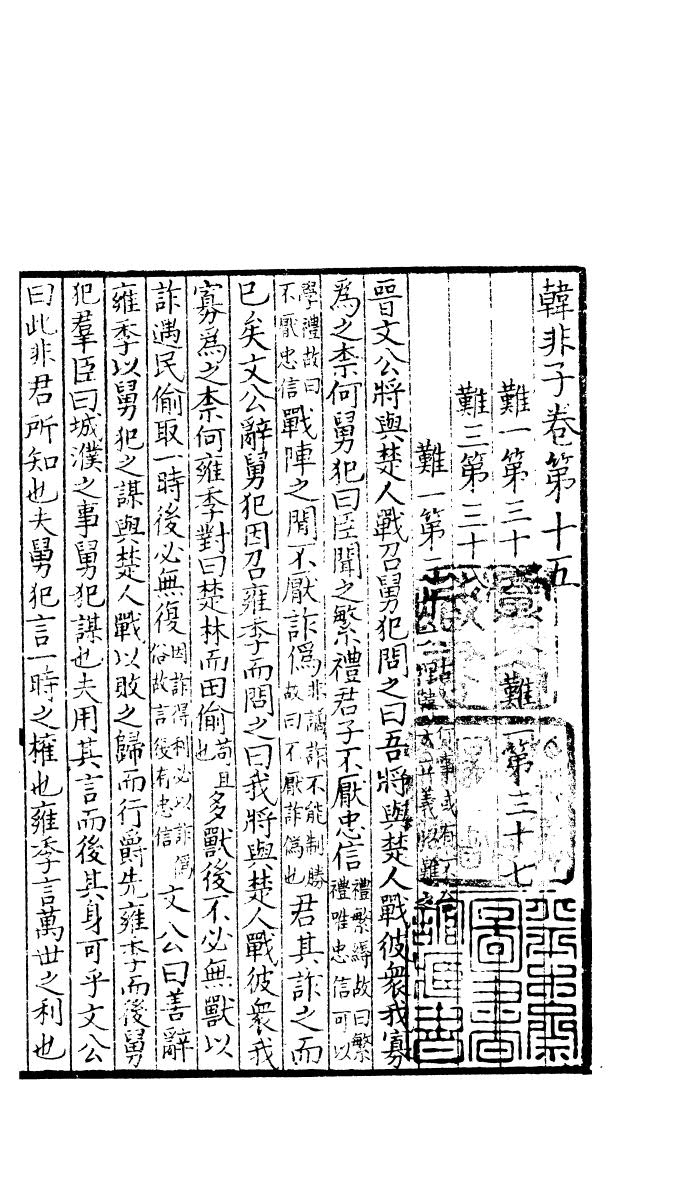 韓非子卷第十五
難一第三十 難二第三十七
難三第三十
難一第三十
晉文公將與楚人戰召舅犯問之曰吾將與楚人戰彼衆我寡
爲之柰何舅犯曰臣聞之繁禮君子不厭忠信禮繁縟故曰繁禮唯忠信可以
學禮故曰不厭忠信戰陣之閒不厭詐僞非譎詐不能制勝故曰不厭詐僞也君其詐之而
已矣文公辭舅犯因召雍季而問之曰我將與楚人戰彼衆我
寡爲之柰何雍季對曰楚林而田偷苟且也多獸後不必無獸以
詐遇民偷取一時後必無復因詐得利必以詐僞俗故言後有忠信文公曰善辭
雍季以舅犯之謀與楚人戰以敗之歸而行爵先雍季而後舅
犯羣臣曰城濮之事舅犯謀也夫用其言而後其身可乎文公
曰此非君所知也夫舅犯言一時之權也雍季言萬世之利也